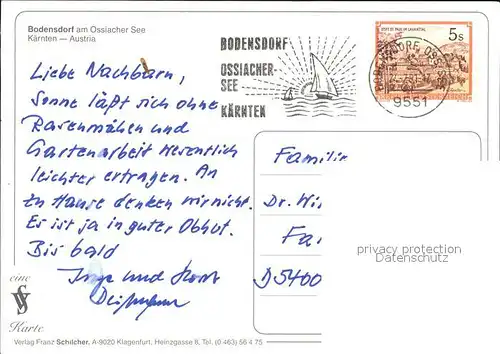 Bodensdorf am Ossiacher See
Kärnten — Austria
BODENSDORF
OSSIACHER-
SEE
KÄRNTEN
5 s
9551
Liebe Nachbarn,
Sonne läßt sich ohne
Rasenmähen und
Gartenarbeit wesentlich
leichter ertragen. An
zu Hause denken wir nicht.
Es ist ja in guter Obhut.
Bis bald
Inge und Horst
Familie
Dr. Wi
Fa
D5400
privacy protection
Datenschutz
eine
Karte
Verlag Franz Schilcher, A-9020 Klagenfurt, Heinzgasse 6, Tel. (0 463) 56 4 75